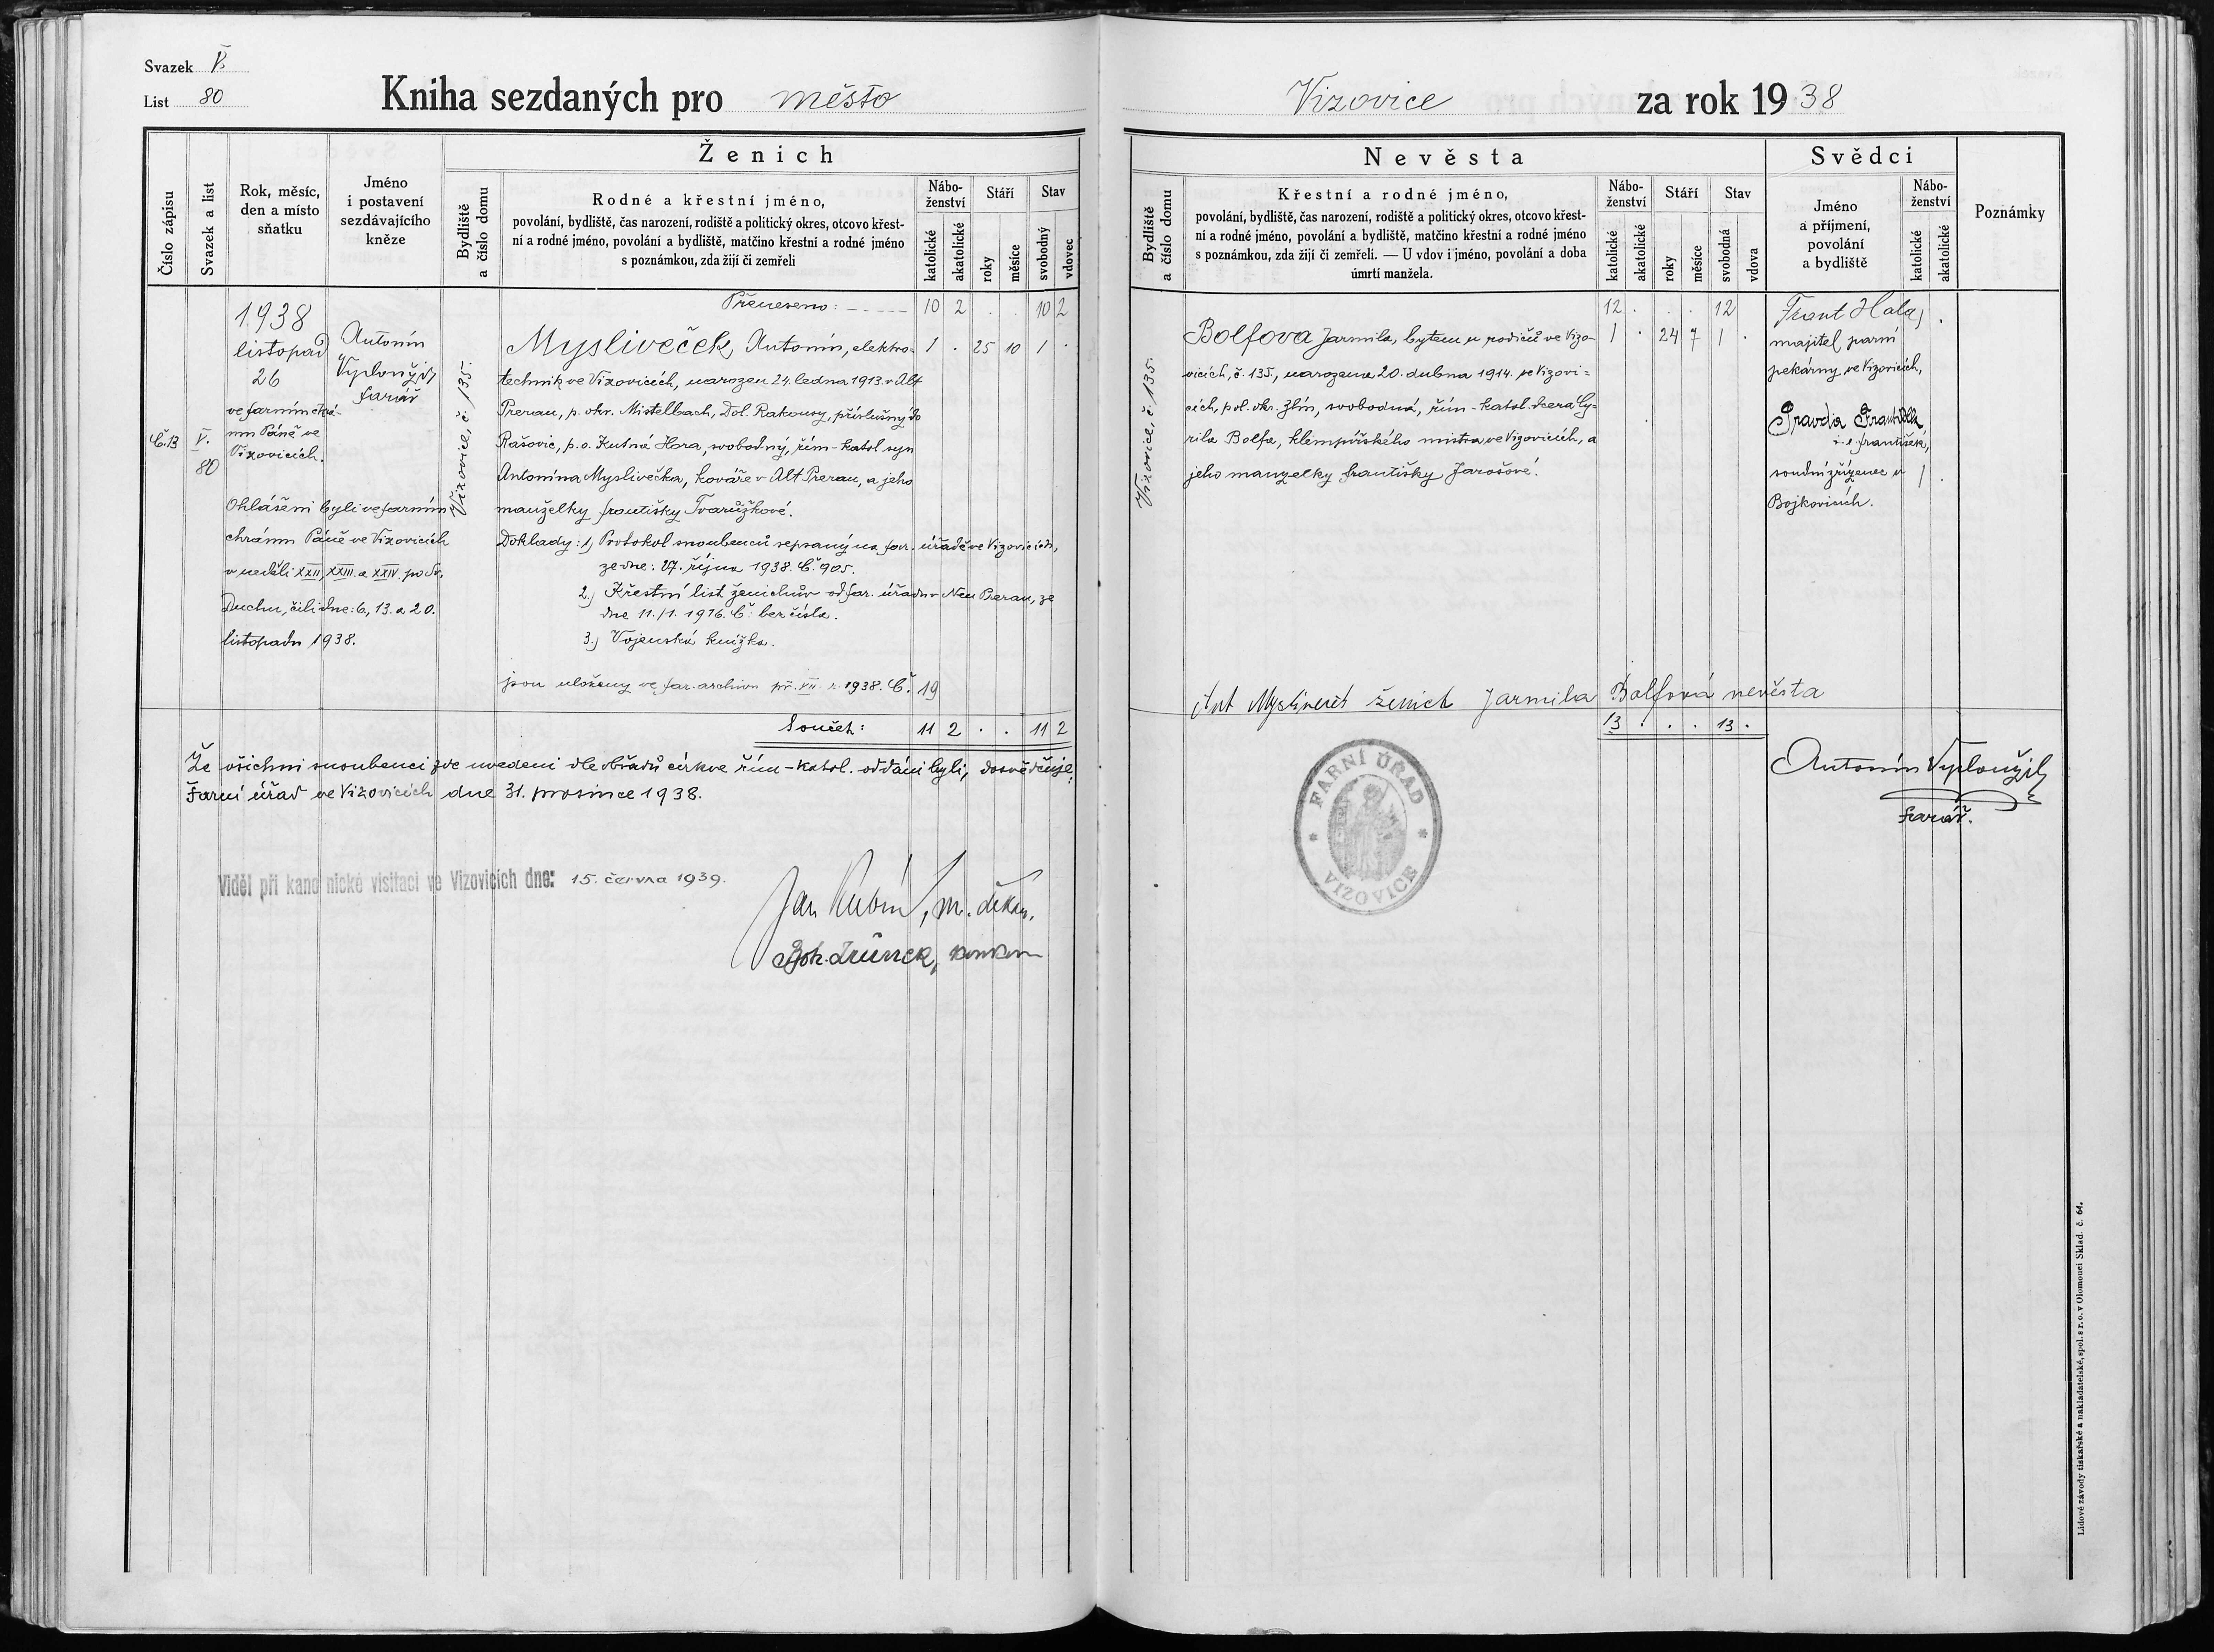 Svazek V.
List 80
Kniha sezdaných pro město
Vizovice za rok 1938
Číslo zápisu
Svazek a list
Rok, měsíc, den a místo sňatku
Jméno i postavení sezdávajícího kněze
Ženich
Bydliště a číslo domu
Rodné a křestní jméno,
povolání, bydliště, čas narození, rodiště a politický okres, otcovo křest-
ní a rodné jméno, povolání a bydliště, matčino křestní a rodné jméno
s poznámkou, zda žijí či zemřeli
Nábo-
ženství
katolické
akatolické
Stáří
roky
měsíce
Stav
svobodný
vdovec
Přeneseno: 10 2 . . 10 2
Č. 13
V.
80
1938
listopad
26
ve farním chrá-
mu Páně ve
Vizovicích.
Ohlášeni byli ve farním
chrámu Páně ve Vizovicích
v neděli XXII, XXIII. a XXIV. po Sv.
Duchu, čili dne: 6, 13. a 20.
listopadu 1938.
Antonín
Vyploužil,
farář
Vizovice, č. 135.
Mysliveček, Antonín, elektro- 1 . 25 10 1 .
technik ve Vizovicích, narozen 24. ledna 1913. v Alt
Prerau, p. okr. Mistelbach, Dol. Rakousy, příslušný do
Rašovic, p. o. Kutná Hora, svobodný, řím-katol. syn
Antonína Myslivečka, kováře v Alt Prerau, a jeho
manželky Františky Tvarůžkové.
Doklady: 1) Protokol snoubenců sepsaný na far. úřadě ve Vizovicích,
ze dne: 27. října 1938. Č. 905.
2.) Křestní list ženichův od far. úřadu v Neu Prerau, ze
dne 11./1. 1916. Č: bez čísla.
3.) Vojenská knížka.
jsou uloženy ve far. archivu př. VII. r. 1938. Č. 19
Součet: 11 2 . . 11 2
Že všichni snoubenci zde uvedeni dle obřadů církve řím-katol. oddáni byli, dosvědčuje:
Farní úřad ve Vizovicích dne 31. prosince 1938.
Viděl při kanonické visitaci ve Vizovicích dne: 15. června 1939.
Jan Kubín, m. děkan.
Nevěsta
Bydliště a číslo domu
Křestní a rodné jméno,
povolání, bydliště, čas narození, rodiště a politický okres, otcovo křest-
ní a rodné jméno, povolání a bydliště, matčino křestní a rodné jméno
s poznámkou, zda žijí či zemřeli. — U vdov i jméno, povolání a doba
úmrtí manžela.
Nábo-
ženství
katolické
akatolické
Stáří
roky
měsíce
Stav
svobodná
vdova
Svědci
Jméno
a příjmení,
povolání
a bydliště
Nábo-
ženství
katolické
akatolické
Poznámky
12 . . . 12
Vizovice, č. 135.
Bolfova Jarmila, bytem u rodičů ve Vizo- 1 . 24 7 1 .
vicích, č. 135., narozena 20. dubna 1914. ve Vizovi=
cích, pol. okr. Zlín, svobodná, řím-katol. dcera Cy=
rila Bolfa, klempířského mistra ve Vizovicích, a
jeho manželky Františky Jarošové.
Frant Halaj
majitel parní
pekárny ve Vizovicích,
Pravda
František,
soudní zřízenec v 1 .
Bojkovicích.
Ant Mysliveček ženich Jarmila Bolfová nevěsta
13 . . . 13 .
Antonín Vyploužil,
farář.
FARNÍ ÚŘAD
VIZOVICE
Lidové závody tiskařské a nakladatelské, spol. s r. o. v Olomouci Sklad. č. 64.